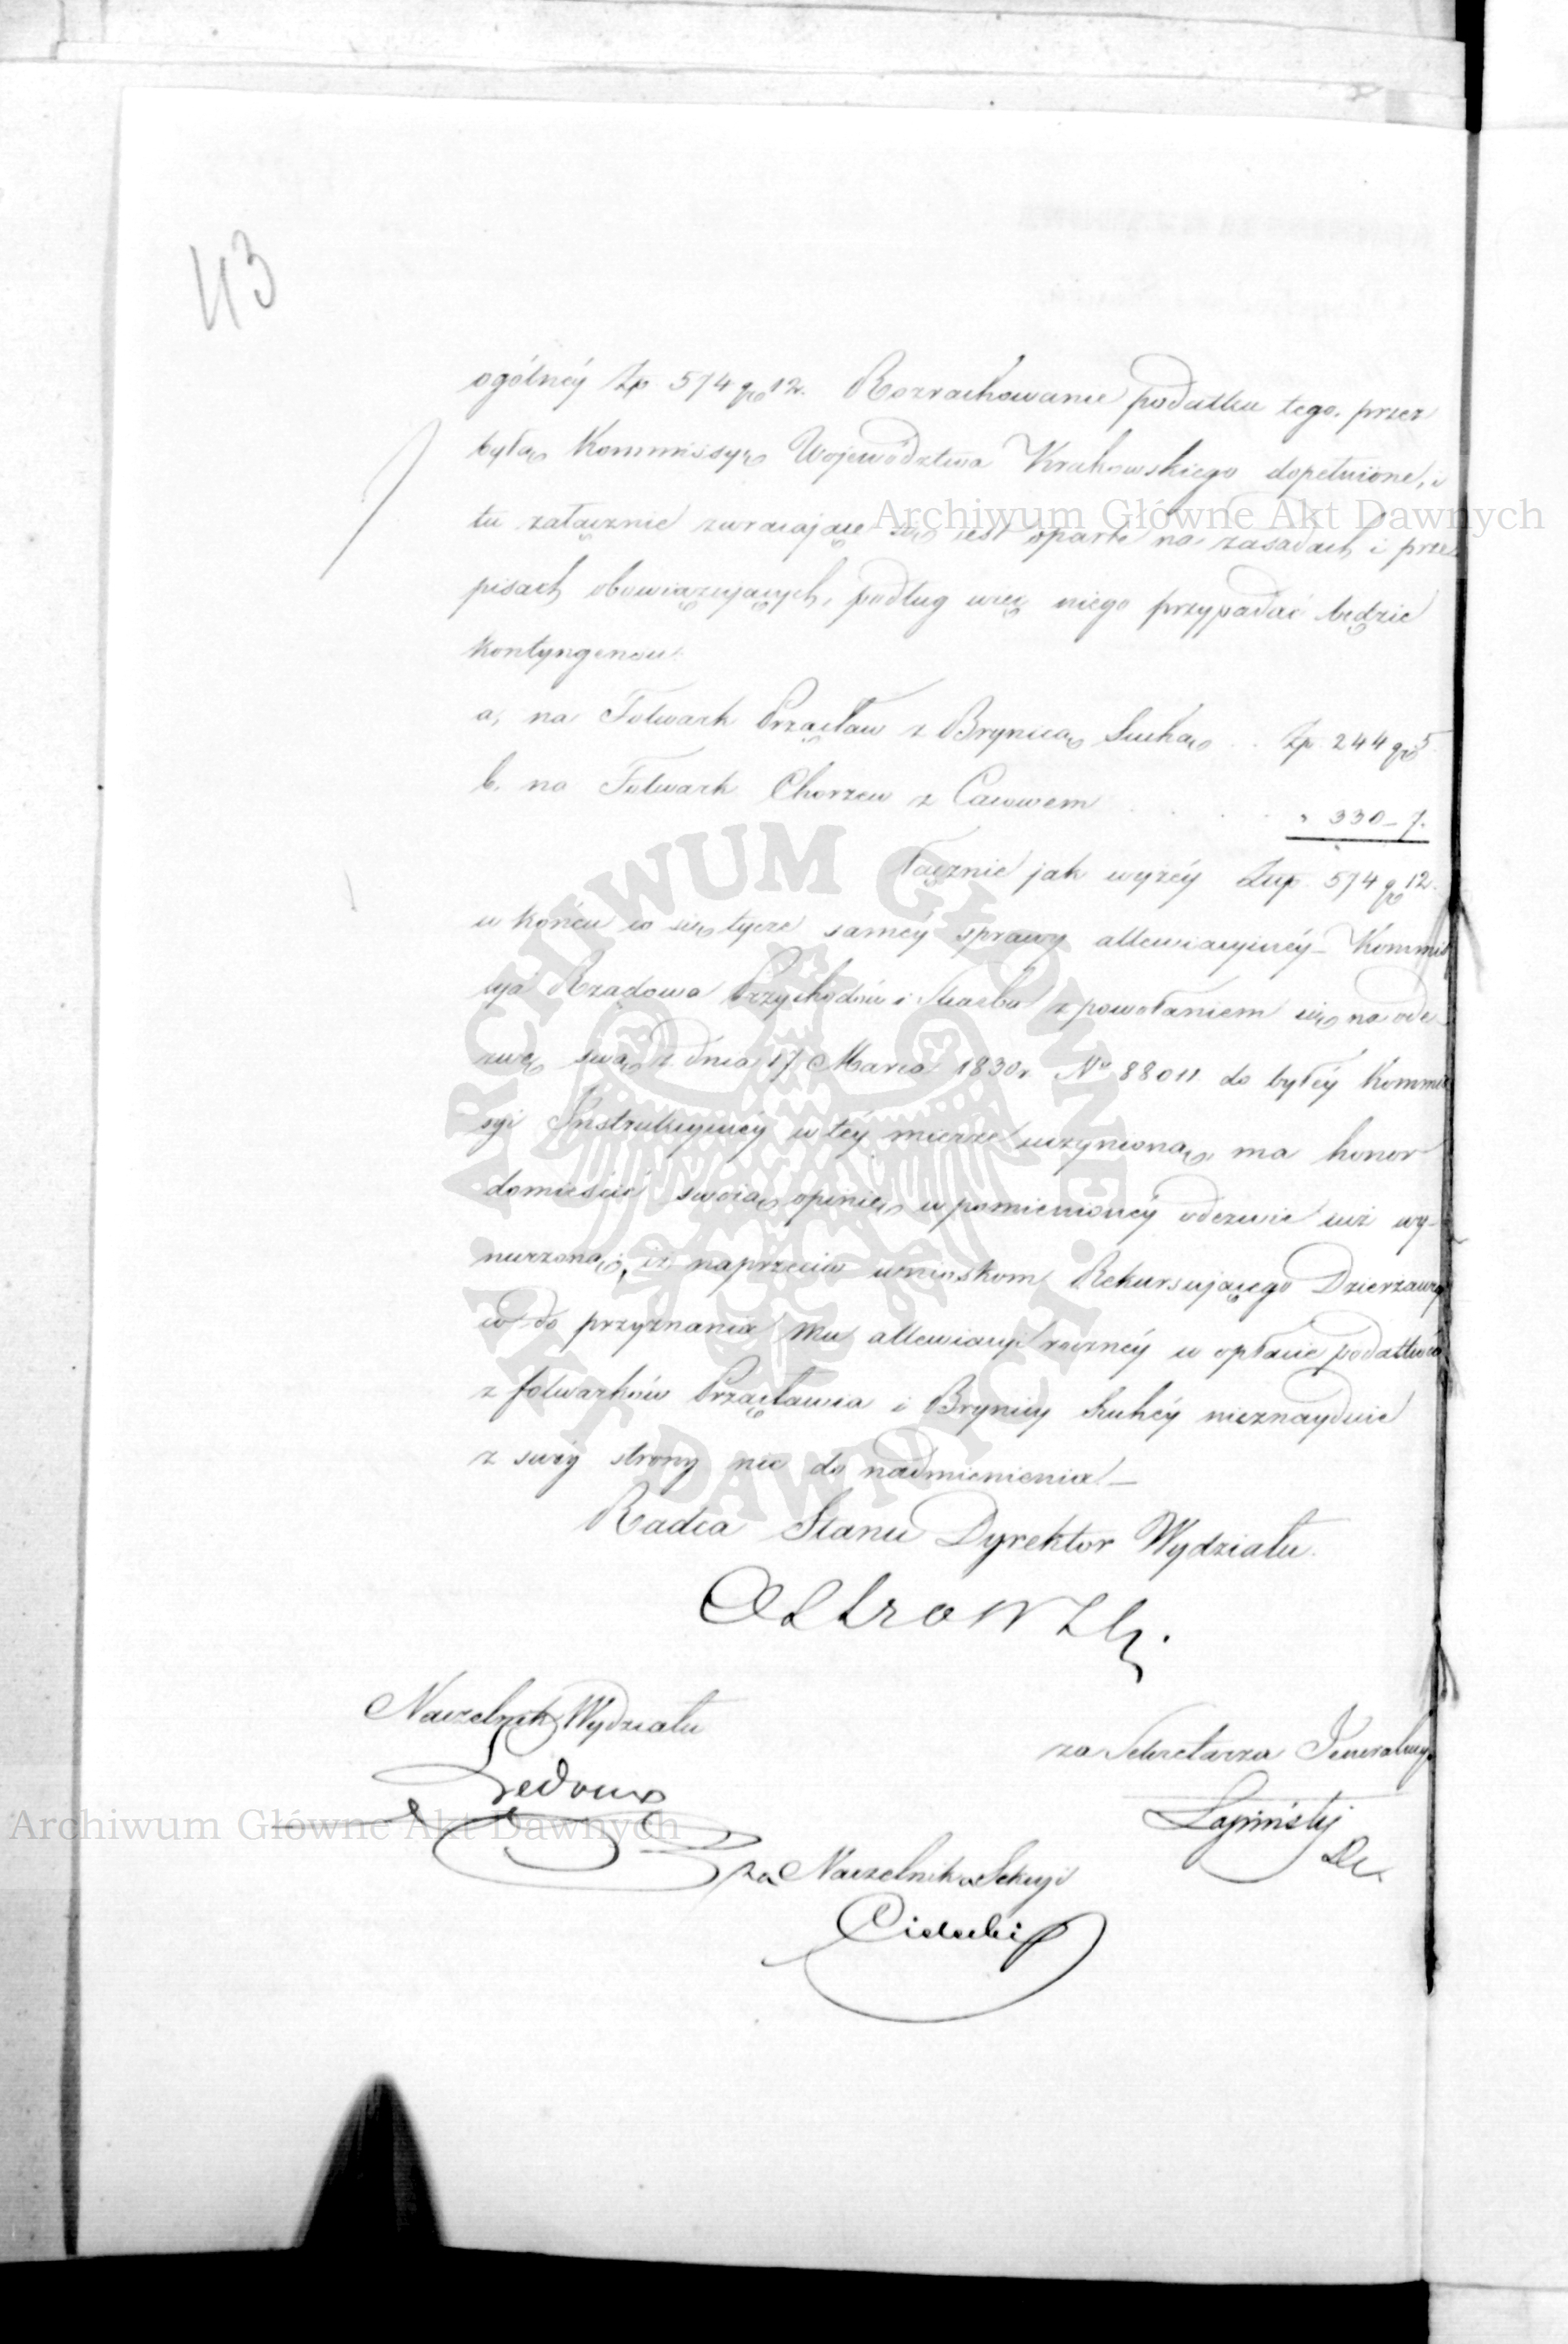 43
ogólnéy Zp. 574 gr 12. Rozrachowanie podatku tego, przez
byłą Kommissyę Województwa Krakowskiego dopełnione, i
tu załącznie zwracające się jest oparte na zasadach i prze
pisach obowiązujących, podług więc niego przypadać będzie
kontyngensu:
a, na Folwark Przącław z Brynicą Suchą .. Zp. 244 gr 5.
b, na Folwark Chorzew z Cacowem . . . . " 330 – 7.
łącznie jak wyżéy Złp. 574 gr 12.
w końcu co się tycze saméy sprawy allewiacyinéy – Kommis
syja Rządowa Przychodów i Skarbu z powołaniem się na ode
zwę swą z dnia 17 Marca 1830 r. No 88011 do byłéy Kommis
syi Instrukcyinéy w téy mierze uczynioną, ma honor
domieścić swoią opinię w pomienionéy odezwie iuż wy-
nurzoną, iż naprzeciw wnioskom Rekursującego Dzierżawcy
co do przyznania Mu allewiacyi roczney w opłacie podatków
z folwarków Przącławia i Brynicy Suchéy nieznayduie
z swéy strony nic do nadmienienia –
Radca Stanu Dyrektor Wydziału.
Naczelnik Wydziału
Ledoux
za Sekretarza Jeneralnego
Łapiński
za Naczelnika Sekcyi
Archiwum Główne Akt Dawnych
Archiwum Główne Akt Dawnych
ARCHIWUM GŁÓWNE AKT DAWNYCH